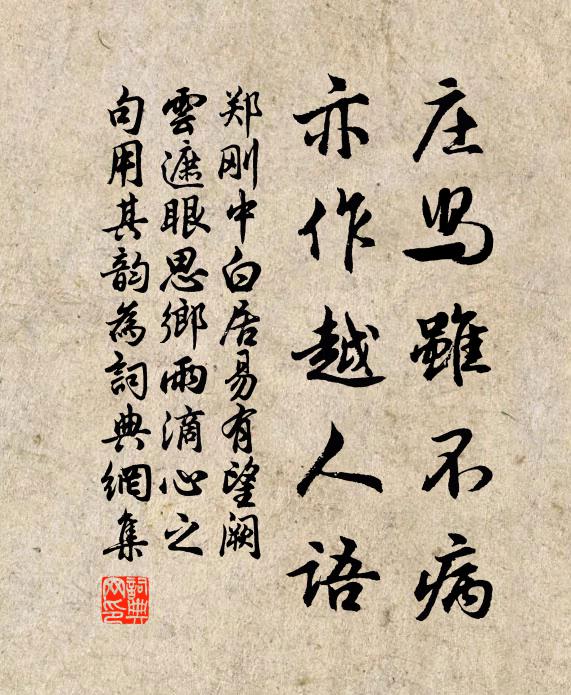 庄舄雖不病
亦作越人語
郑刚中白居易有望阙
雲遮眼思鄉雨滴心之
句用其韵為詞典網集
詞典网印